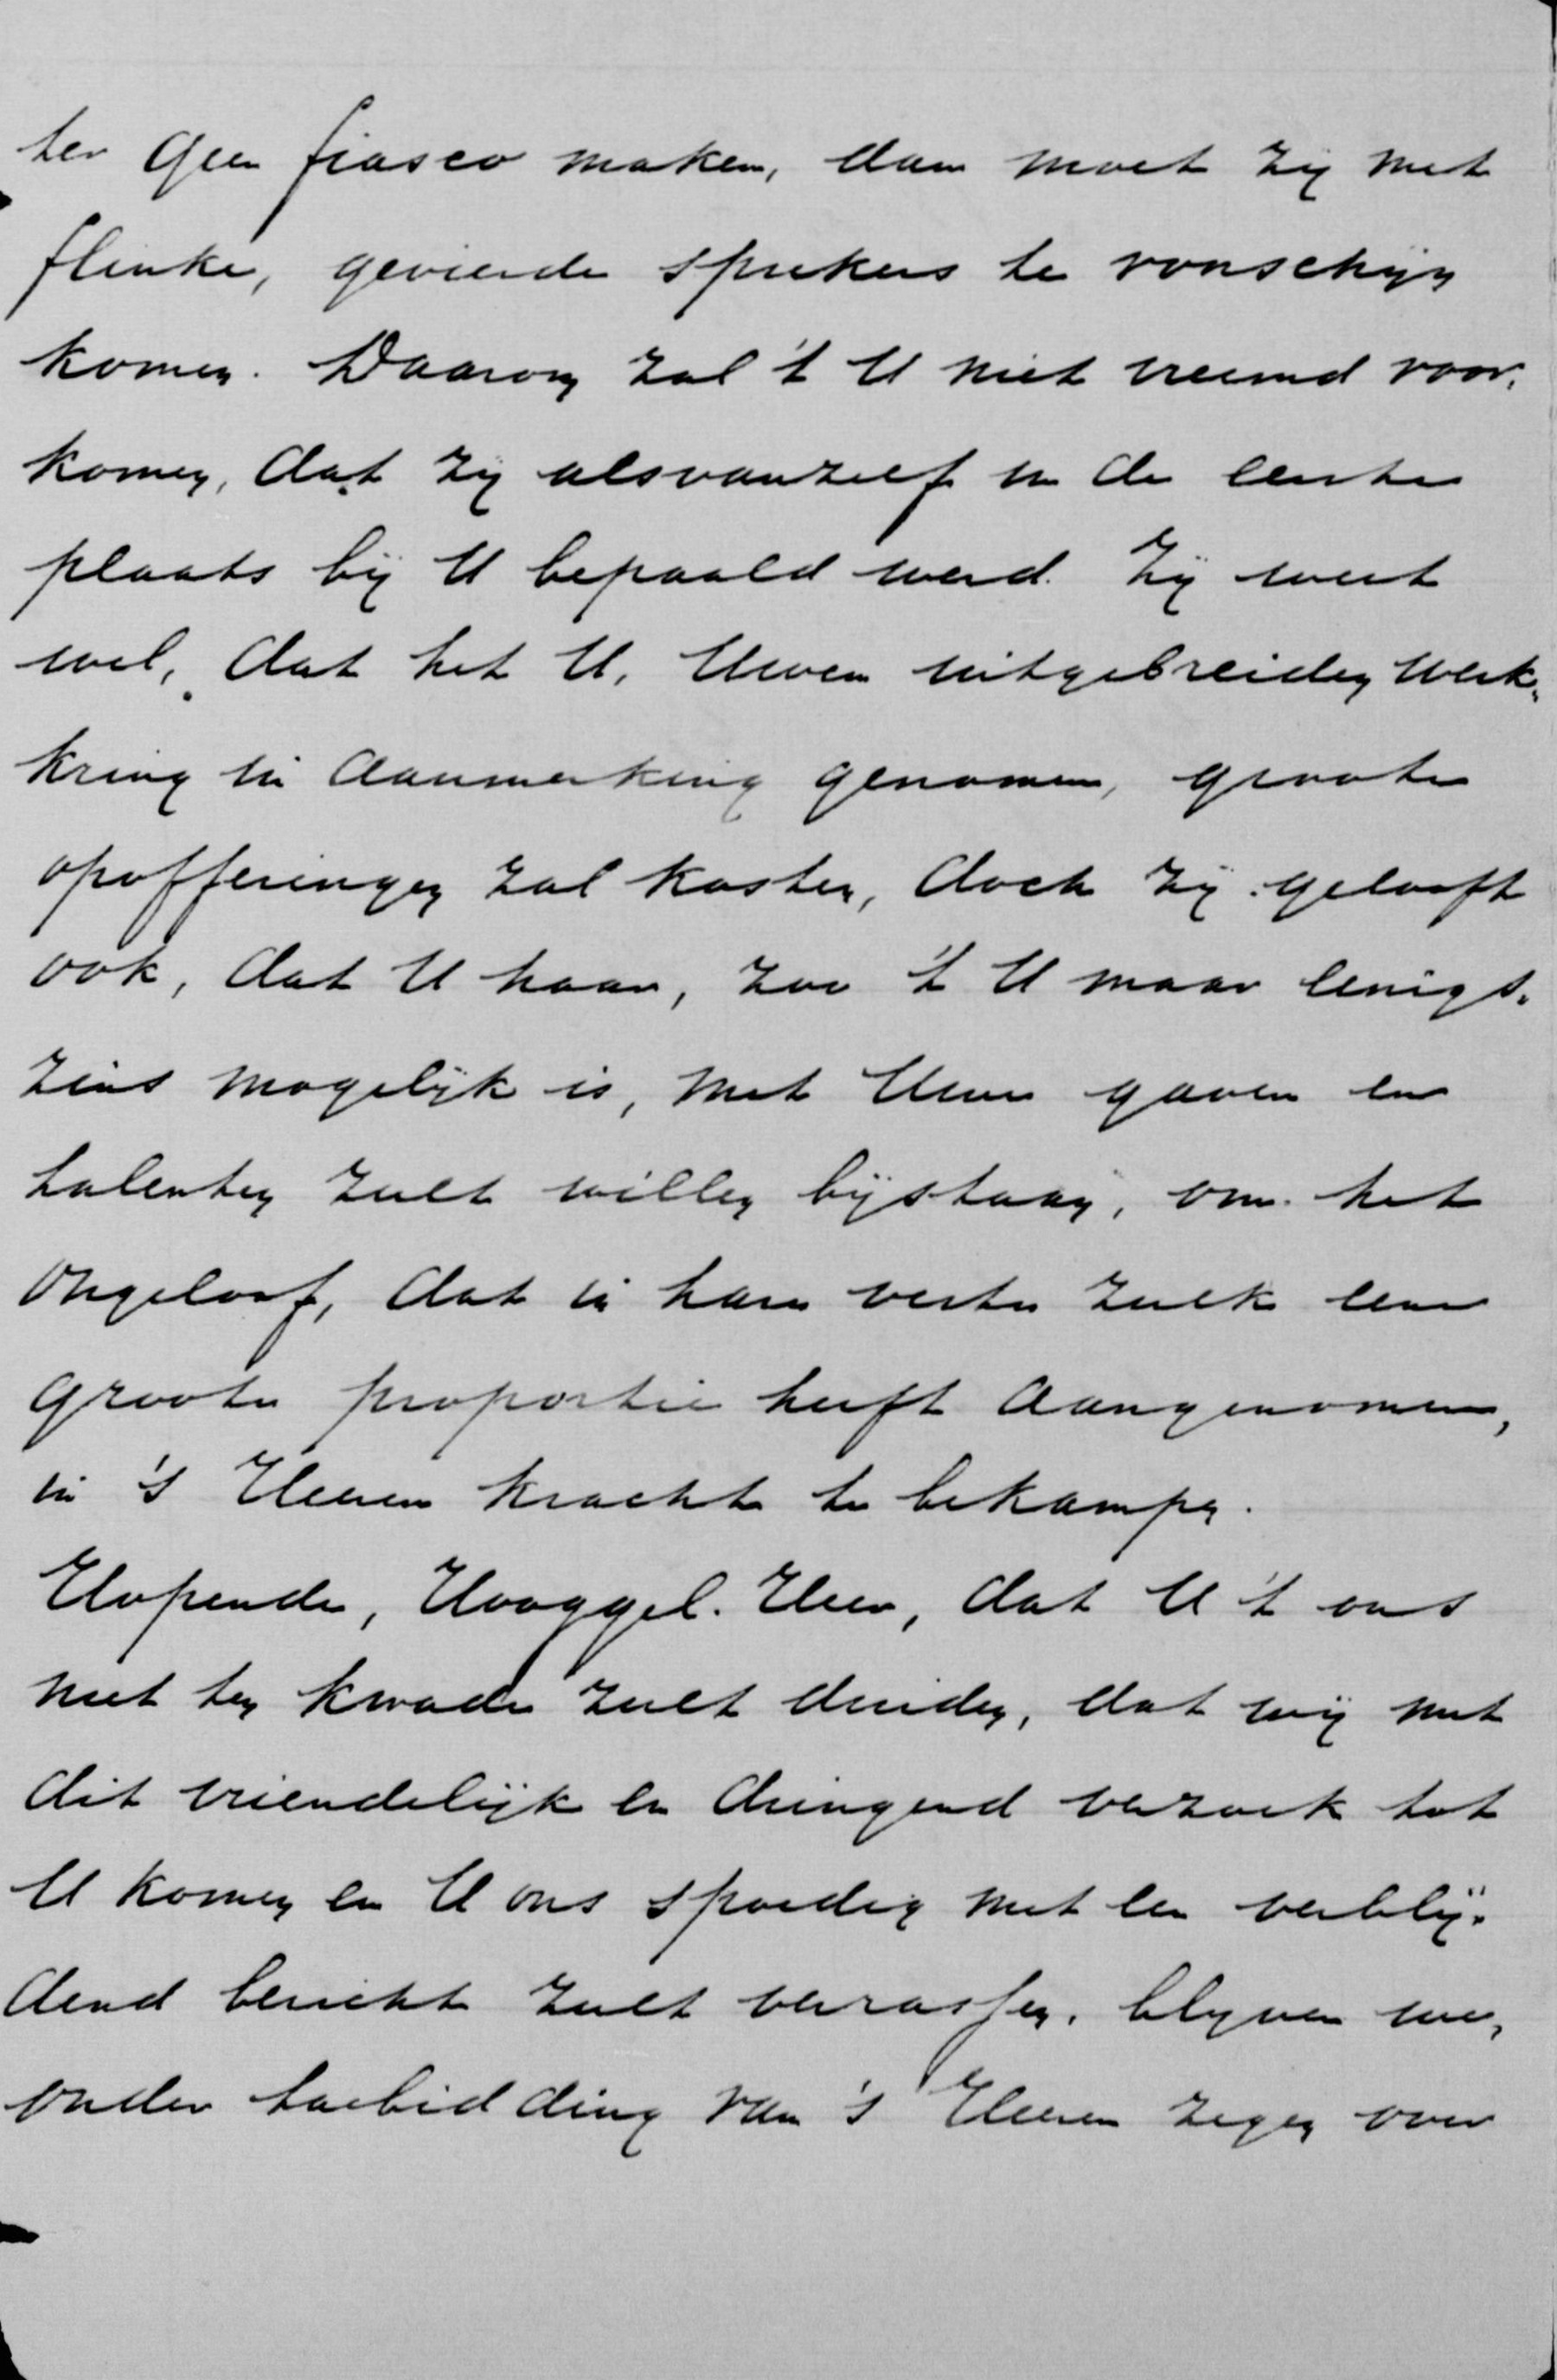 ter geen fiasco maken, dan moet zij met
flinke, gevierde sprekers te voorschijn
komen. Daarom zal 't U niet vreemd voor-
komen, dat zij alsvanzelf in de eerste
plaats bij U bepaald werd. Zij weet
wel, dat het U, Uwen uitgebreiden werk-
kring in aanmerking genomen, groote
opofferingen zal kosten, doch zij gelooft
ook, dat U haar, zoo 't U maar eenigs-
zins mogelijk is, met Uwe gaven en
talenten zult willen bijstaan, om het
ongeloof, dat in hare veste zulk eene
groote proportie heeft aangenomen,
in 's Heeren kracht te bekampen.
Hopende, Hooggel. Heer, dat U 't ons
niet ten kwade zult duiden, dat wij met
dit vriendelijk en dringend verzoek tot
U komen en U ons spoedig met een verblij-
dend bericht zult verrassen, blijven we,
onder toebidding van 's Heeren zegen over